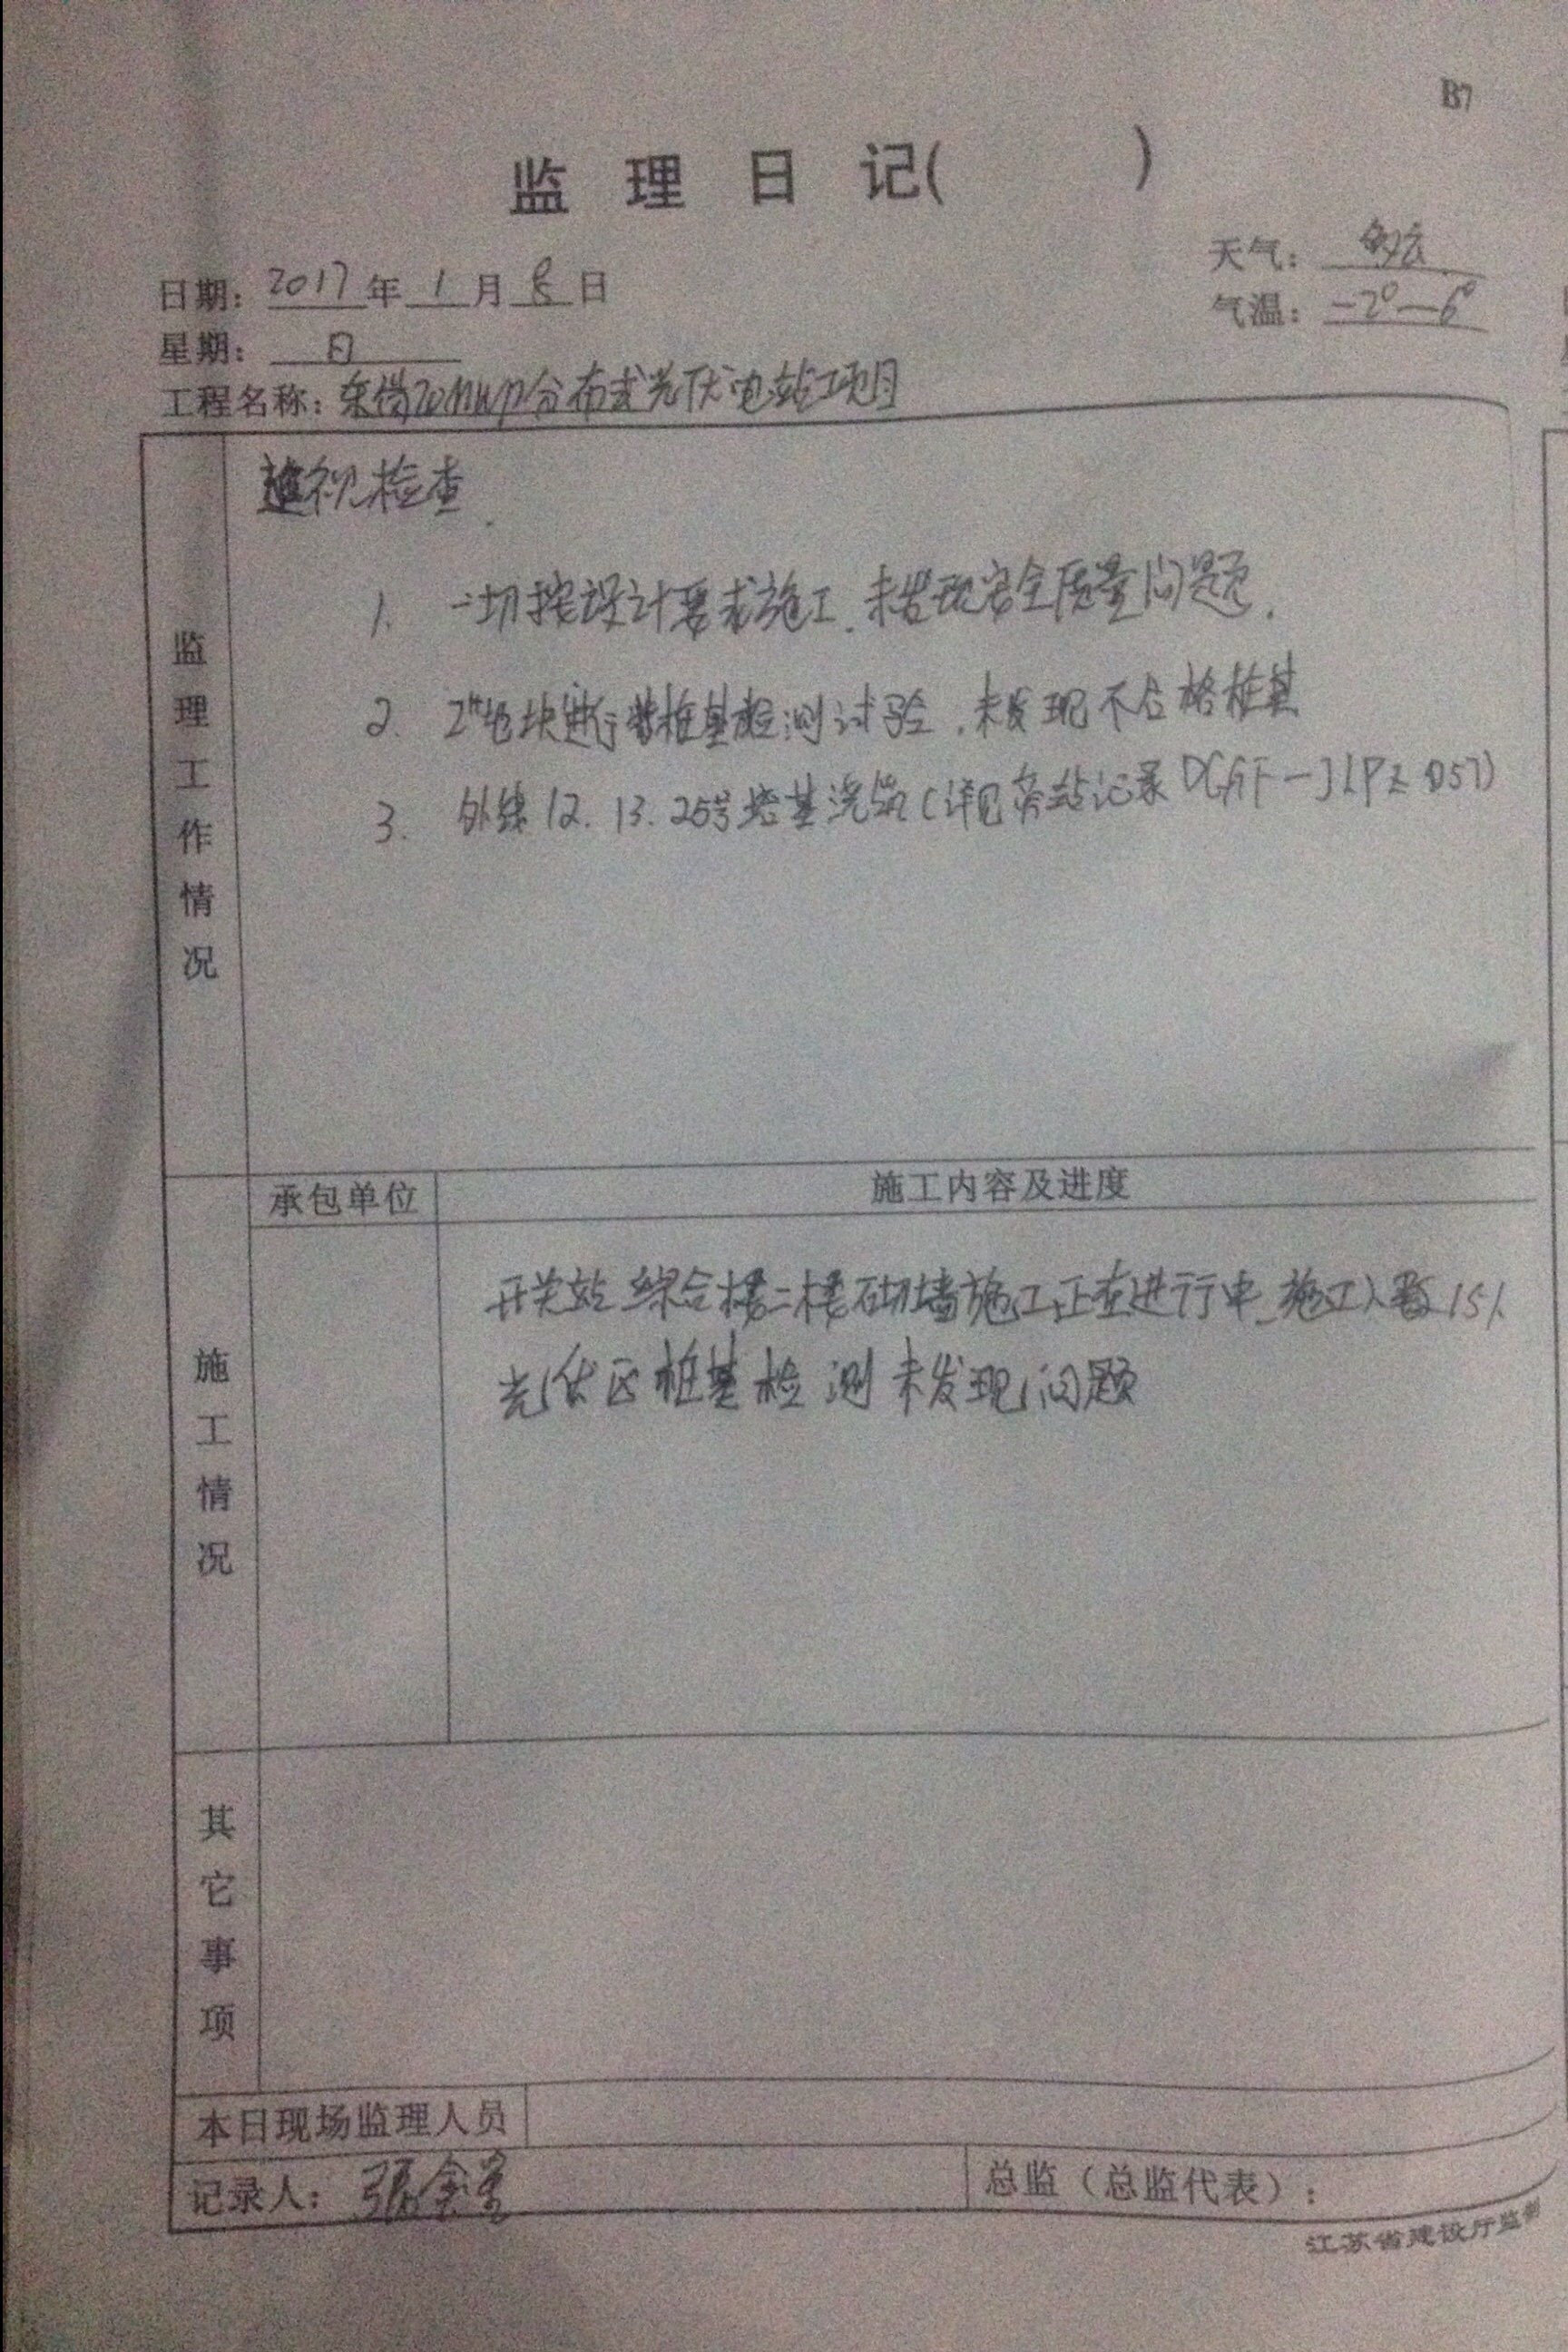 B7
监理日记(   )
日期: 2017年1月8日
天气: 多云
星期: 日
气温: -2°—6°
工程名称: 20MWp分布式光伏电站项目
监理工作情况
巡视检查
1. 一切按设计要求施工.未发现安全质量问题.
2. 2#地块进行桩基检测试验.未发现不合格桩基
3. 外线12.13.25号塔基浇筑(详见旁站记录
施工情况
承包单位
施工内容及进度
开关站综合楼二楼砌墙施工正在进行中.施工人数15人
光伏区桩基检测未发现问题
其它事项
本日现场监理人员
记录人: 張
总监(总监代表):
江苏省建设厅监制